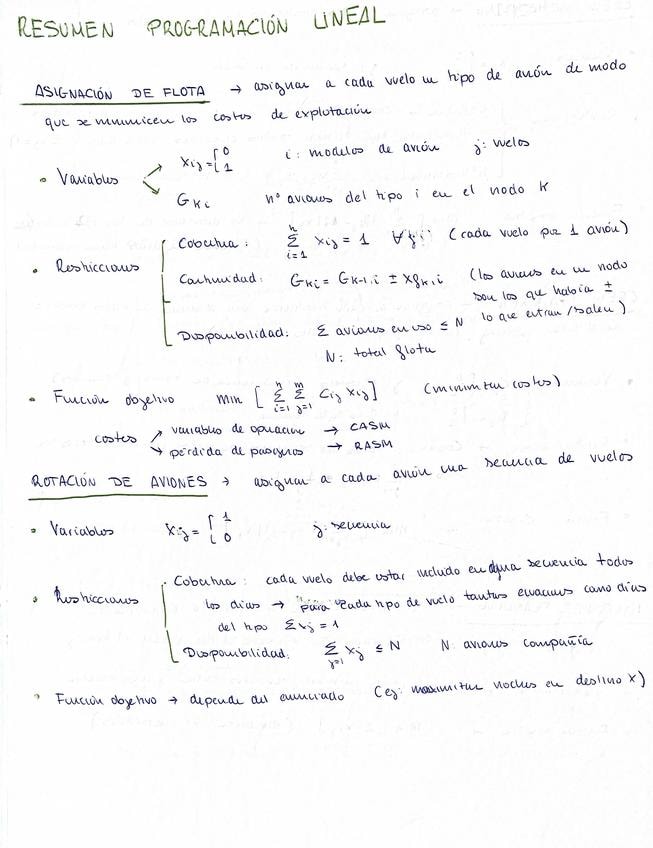 RESUMEN PROGRAMACIÓN LINEAL
ASIGNACIÓN DE FLOTA → asignar a cada vuelo un tipo de avión de modo
que se minimicen los costos de explotación
• Variables → Xij = [ 0 1 i: modelos de avión j: vuelos
→ Gki nº aviones del tipo i en el nodo k
• Restricciones
Cobertura: Σ(i=1, n) Xij = 1 ∀j (cada vuelo por 1 avión)
Continuidad: Gki = Gk-1,i ± Xjk,i (los aviones en un nodo
son los que había ±
lo que entran/salen)
Disponibilidad: Σ aviones en uso ≤ N
N: total flota
• Función objetivo min [ Σ(i=1, n) Σ(j=1, m) Cij Xij ] (minimizar costos)
costes → variables de operación → CASM
→ pérdida de pasajeros → RASM
ROTACIÓN DE AVIONES → asignar a cada avión una secuencia de vuelos
• Variables Xij = [ 1 0 j: secuencia
• Restricciones
Cobertura: cada vuelo debe estar incluido en alguna secuencia todos
los días → para cada tipo de vuelo tantas ecuaciones como días
del tipo Σxj = 1
Disponibilidad: Σ(j=1) Xj ≤ N N: aviones compañía
• Función objetivo → depende del enunciado (ej: maximizar noches en destino X)